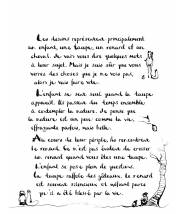 Les dessins représentent principalement
un enfant, une taupe, un renard et un
cheval. Je vais vous dire quelques mots
à leur sujet. Mais je suis sûr que vous
verrez des choses que je ne vois pas,
alors je vais faire vite.
L'enfant se sent seul quand la taupe
apparaît. Ils passent du temps ensemble
à contempler la nature. Je pense que
la nature est un peu comme la vie,
effrayante parfois, mais belle.
Au cours de leur périple, ils rencontrent
le renard. Ce n'est pas évident de croiser
un renard quand vous êtes une taupe.
L'enfant se pose plein de questions.
La taupe raffole des gâteaux. Le renard
est souvent silencieux et méfiant parce
qu'il a été blessé par la vie.